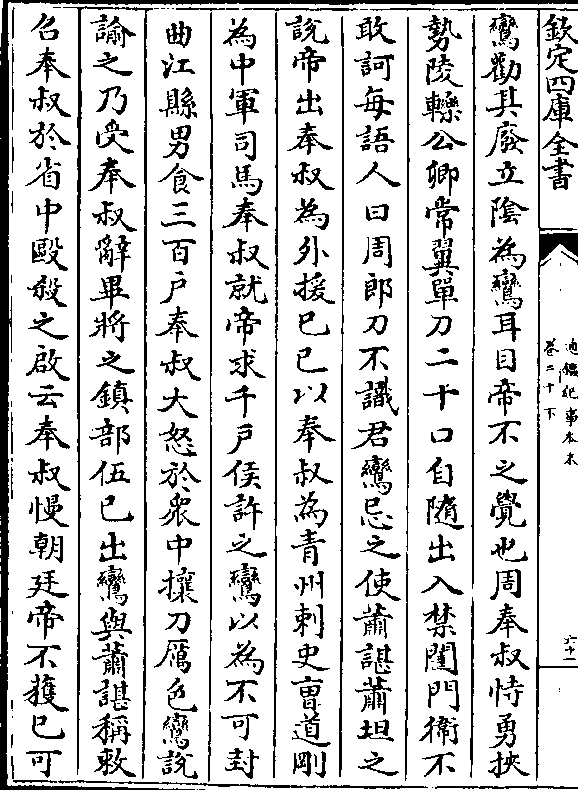 欽定四庫全書
通鑑紀事本末
卷二十下
六十一
鸞勸其廢立陰為鸞耳目帝不之覺也周奉叔恃勇挾
勢陵轢公卿常翼單刀二十口自隨出入禁闥門衛不
敢訶每語人曰周郎刀不識君鸞忌之使蕭諶蕭坦之
說帝出奉叔為外援己巳以奉叔為青州刺史曹道剛
為中軍司馬奉叔就帝求千戶侯許之鸞以為不可封
曲江縣男食三百戶奉叔大怒於衆中攘刀厲色鸞說
諭之乃受奉叔辭畢將之鎮部伍已出鸞與蕭諶稱敕
召奉叔於省中毆殺之啟云奉叔慢朝廷帝不獲已可